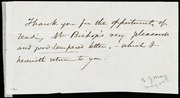 Thank you for the opportunity of
reading Mr Bishop's very pleasant
and good-tempered letter, - which I
herewith return to you.